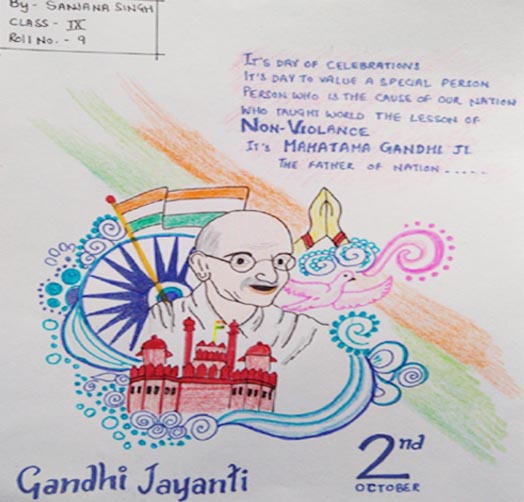 By - SANJANA SINGH
CLASS - IX
ROLL NO. - 9
IT'S DAY OF CELEBRATIONS
IT'S DAY TO VALUE A SPECIAL PERSON
PERSON WHO IS THE CAUSE OF OUR NATION
WHO TAUGHT WORLD THE LESSON OF
NON-VIOLANCE
IT'S MAHATAMA GANDHI JI
THE FATHER OF NATION .....
Gandhi Jayanti
2nd
OCTOBER